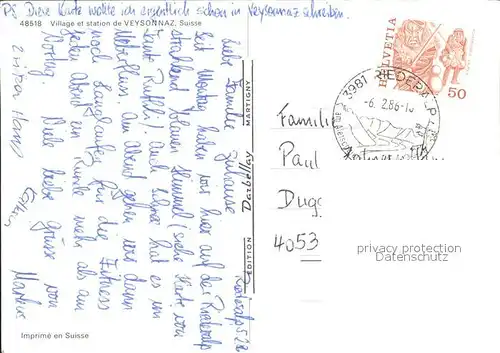 PS Diese Karte wollte ich eigentlich schon in Veysonnaz schreiben.
48518 Village et station de VEYSONNAZ, Suisse
Riederalp 5.2.86
Liebe Familie Zuhause
Seit Montag haben wir hier auf der Riederalp
strahlend blauen Himmel (siehe Karte von
Tante Ruthli). Auch Schnee hat es im
Überfluss. Am Abend gehen wir dann
noch Langlaufen für die Fitness
jeden Abend ein Runde mehr als am
Vortag. Viele liebe Grüsse von
Markus
Imprimé en Suisse
EDITION Darbellay MARTIGNY
HELVETIA
50
3981 RIEDERALP
-6.2.86-
Familie
Paul
Dug
4053
privacy protection
Datenschutz